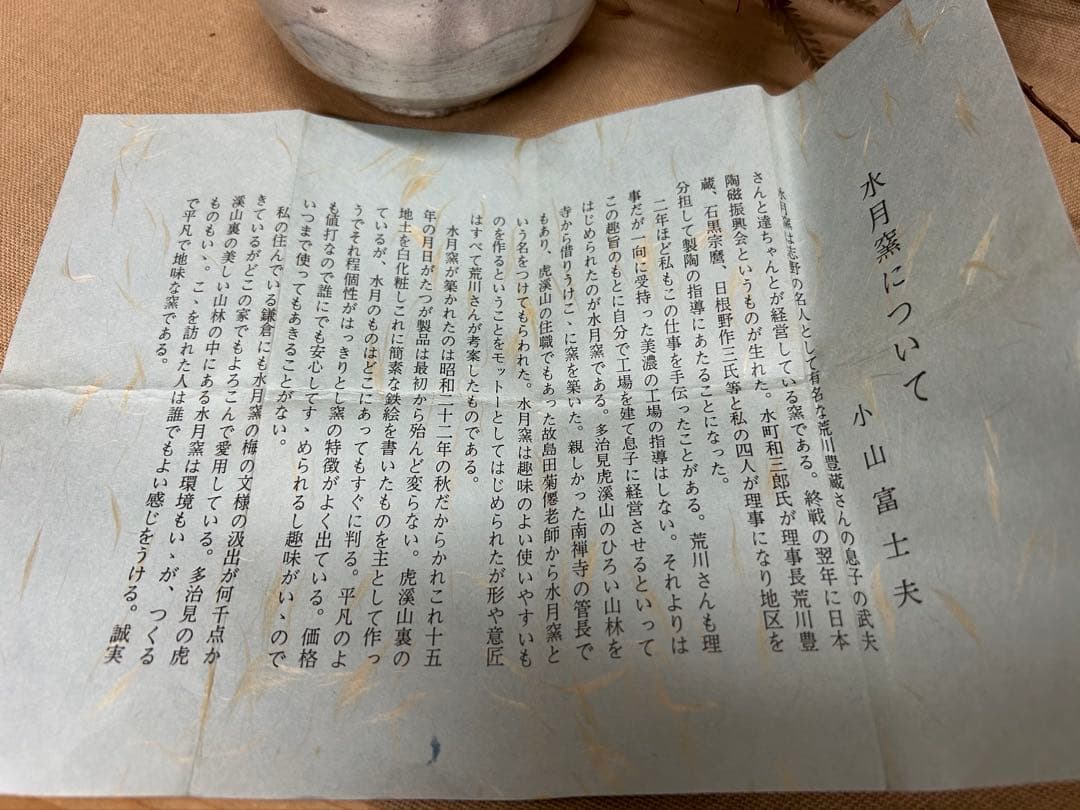 水月窯について
小山富士夫
水月窯は志野の名人として有名な荒川豊蔵さんの息子の武夫
さんと達ちゃんとが経営している窯である。終戦の翌年に日本
陶磁振興会というものが生れた。水町和三郎氏が理事長荒川豊
蔵、石黒宗麿、日根野作三氏等と私の四人が理事になり地区を
分担して製陶の指導にあたることになった。
二年ほど私もこの仕事を手伝ったことがある。荒川さんも理
事だが一向に受持った美濃の工場の指導はしない。それよりは
この趣旨のもとに自分で工場を建て息子に経営させるといって
はじめられたのが水月窯である。多治見虎溪山のひろい山林を
寺から借りうけこゝに窯を築いた。親しかった南禅寺の管長で
もあり、虎溪山の住職でもあった故島田菊僊老師から水月窯と
いう名をつけてもらわれた。水月窯は趣味のよい使いやすいも
のを作るということをモットーとしてはじめられたが形や意匠
はすべて荒川さんが考案したものである。
水月窯が築かれたのは昭和二十二年の秋だからかれこれ十五
年の月日がたつが製品は最初から殆んど変らない。虎溪山裏の
地土を白化粧しこれに簡素な鉄絵を書いたものを主として作っ
ているが、水月のものはどこにあってもすぐに判る。平凡のよ
うでそれ程個性がはっきりとし窯の特徴がよく出ている。価格
も値打なので誰にでも安心してすゝめられるし趣味がいゝので
いつまで使ってもあきることがない。
私の住んでいる鎌倉にも水月窯の梅の文様の汲出が何千点か
きているがどこの家でもよろこんで愛用している。多治見の虎
溪山裏の美しい山林の中にある水月窯は環境もいゝが、つくる
ものもいゝ。こゝを訪れた人は誰でもよい感じをうける。誠実
で平凡で地味な窯である。